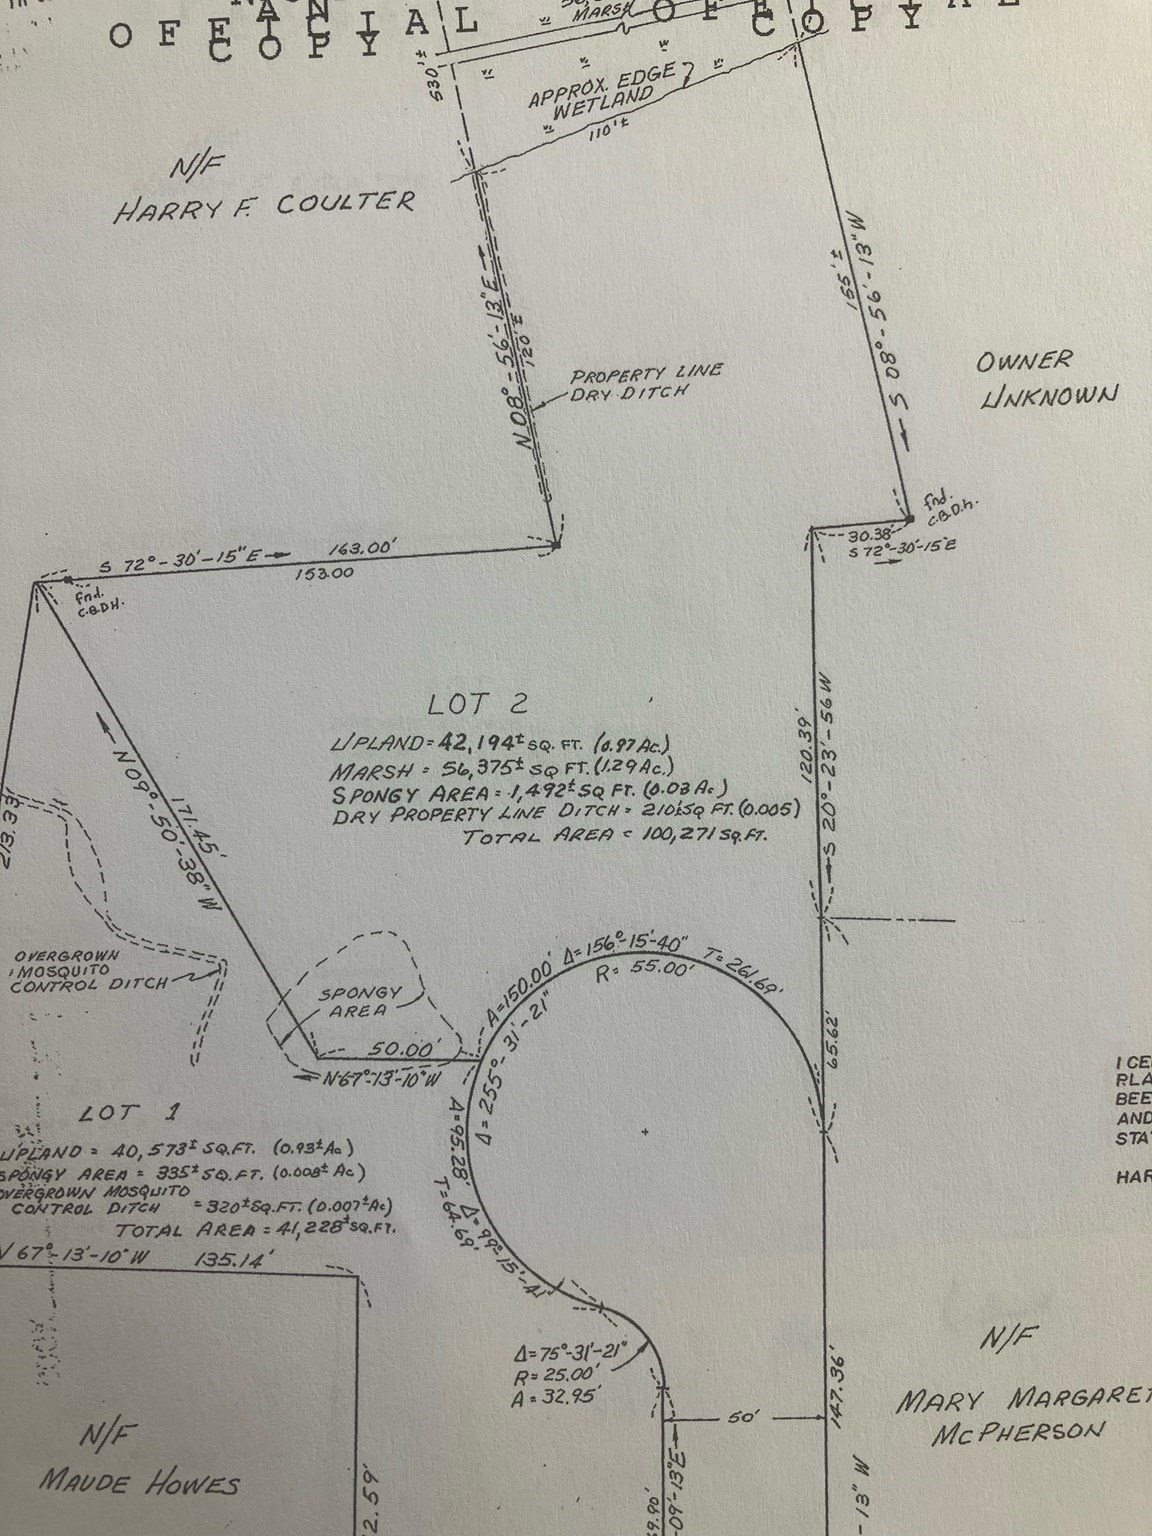 OFFICIAL
COPY
OFFICIAL
COPY
MARSH
530'±
APPROX. EDGE
WETLAND
110'±
N/F
HARRY F. COULTER
N 08°-56'-13"E
120'±
PROPERTY LINE
DRY DITCH
155'±
S 08°-56'-13"W
OWNER
UNKNOWN
fnd.
C.B.D.h.
30.38'
S 72°-30'-15"E
S 72°-30'-15"E
163.00'
153.00
fnd.
C.B.D.H.
LOT 2
UPLAND = 42,194± SQ. FT. (0.97 Ac.)
MARSH = 56,375± SQ FT. (1.29 Ac.)
SPONGY AREA = 1,492± SQ FT. (0.03 Ac)
DRY PROPERTY LINE DITCH = 210± SQ FT. (0.005)
TOTAL AREA = 100,271 SQ.FT.
120.39'
S 20°-23'-56 W
171.45'
N 09°-50'-38" W
213.33
OVERGROWN
MOSQUITO
CONTROL DITCH
SPONGY
AREA
50.00'
N 67°-13'-10"W
A=150.00' Δ=156°-15'-40" T=261.69'
R= 55.00'
Δ=255°-31'-21"
A=95.28' Δ=99°-15'-41"
T=64.69'
65.62'
LOT 1
UPLAND = 40,573± SQ.FT. (0.93± Ac)
SPONGY AREA = 335± SQ.FT. (0.008± Ac)
OVERGROWN MOSQUITO
CONTROL DITCH = 320± SQ.FT. (0.007± Ac)
TOTAL AREA = 41,228± SQ.FT.
N 67°-13'-10" W 135.14'
Δ=75°-31'-21"
R= 25.00'
A= 32.95'
50'
147.36'
N/F
MARY MARGARET
McPHERSON
N/F
MAUDE HOWES
2.59'
9.90'
-09'-13"E
-13" W
I CE
PLA
BEE
AND
STA
HAR